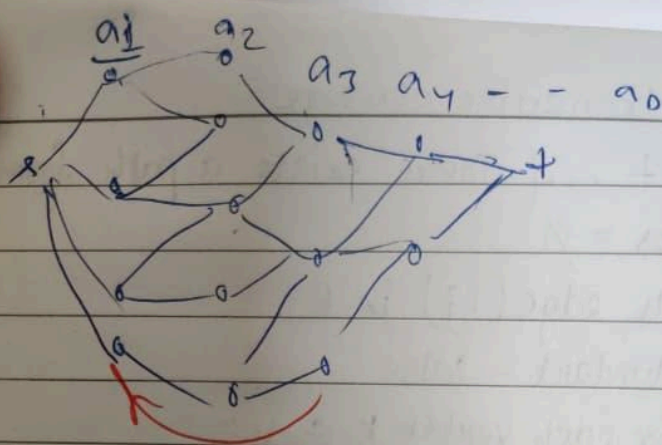 a1 a2
a3 a4 - - a0
s t